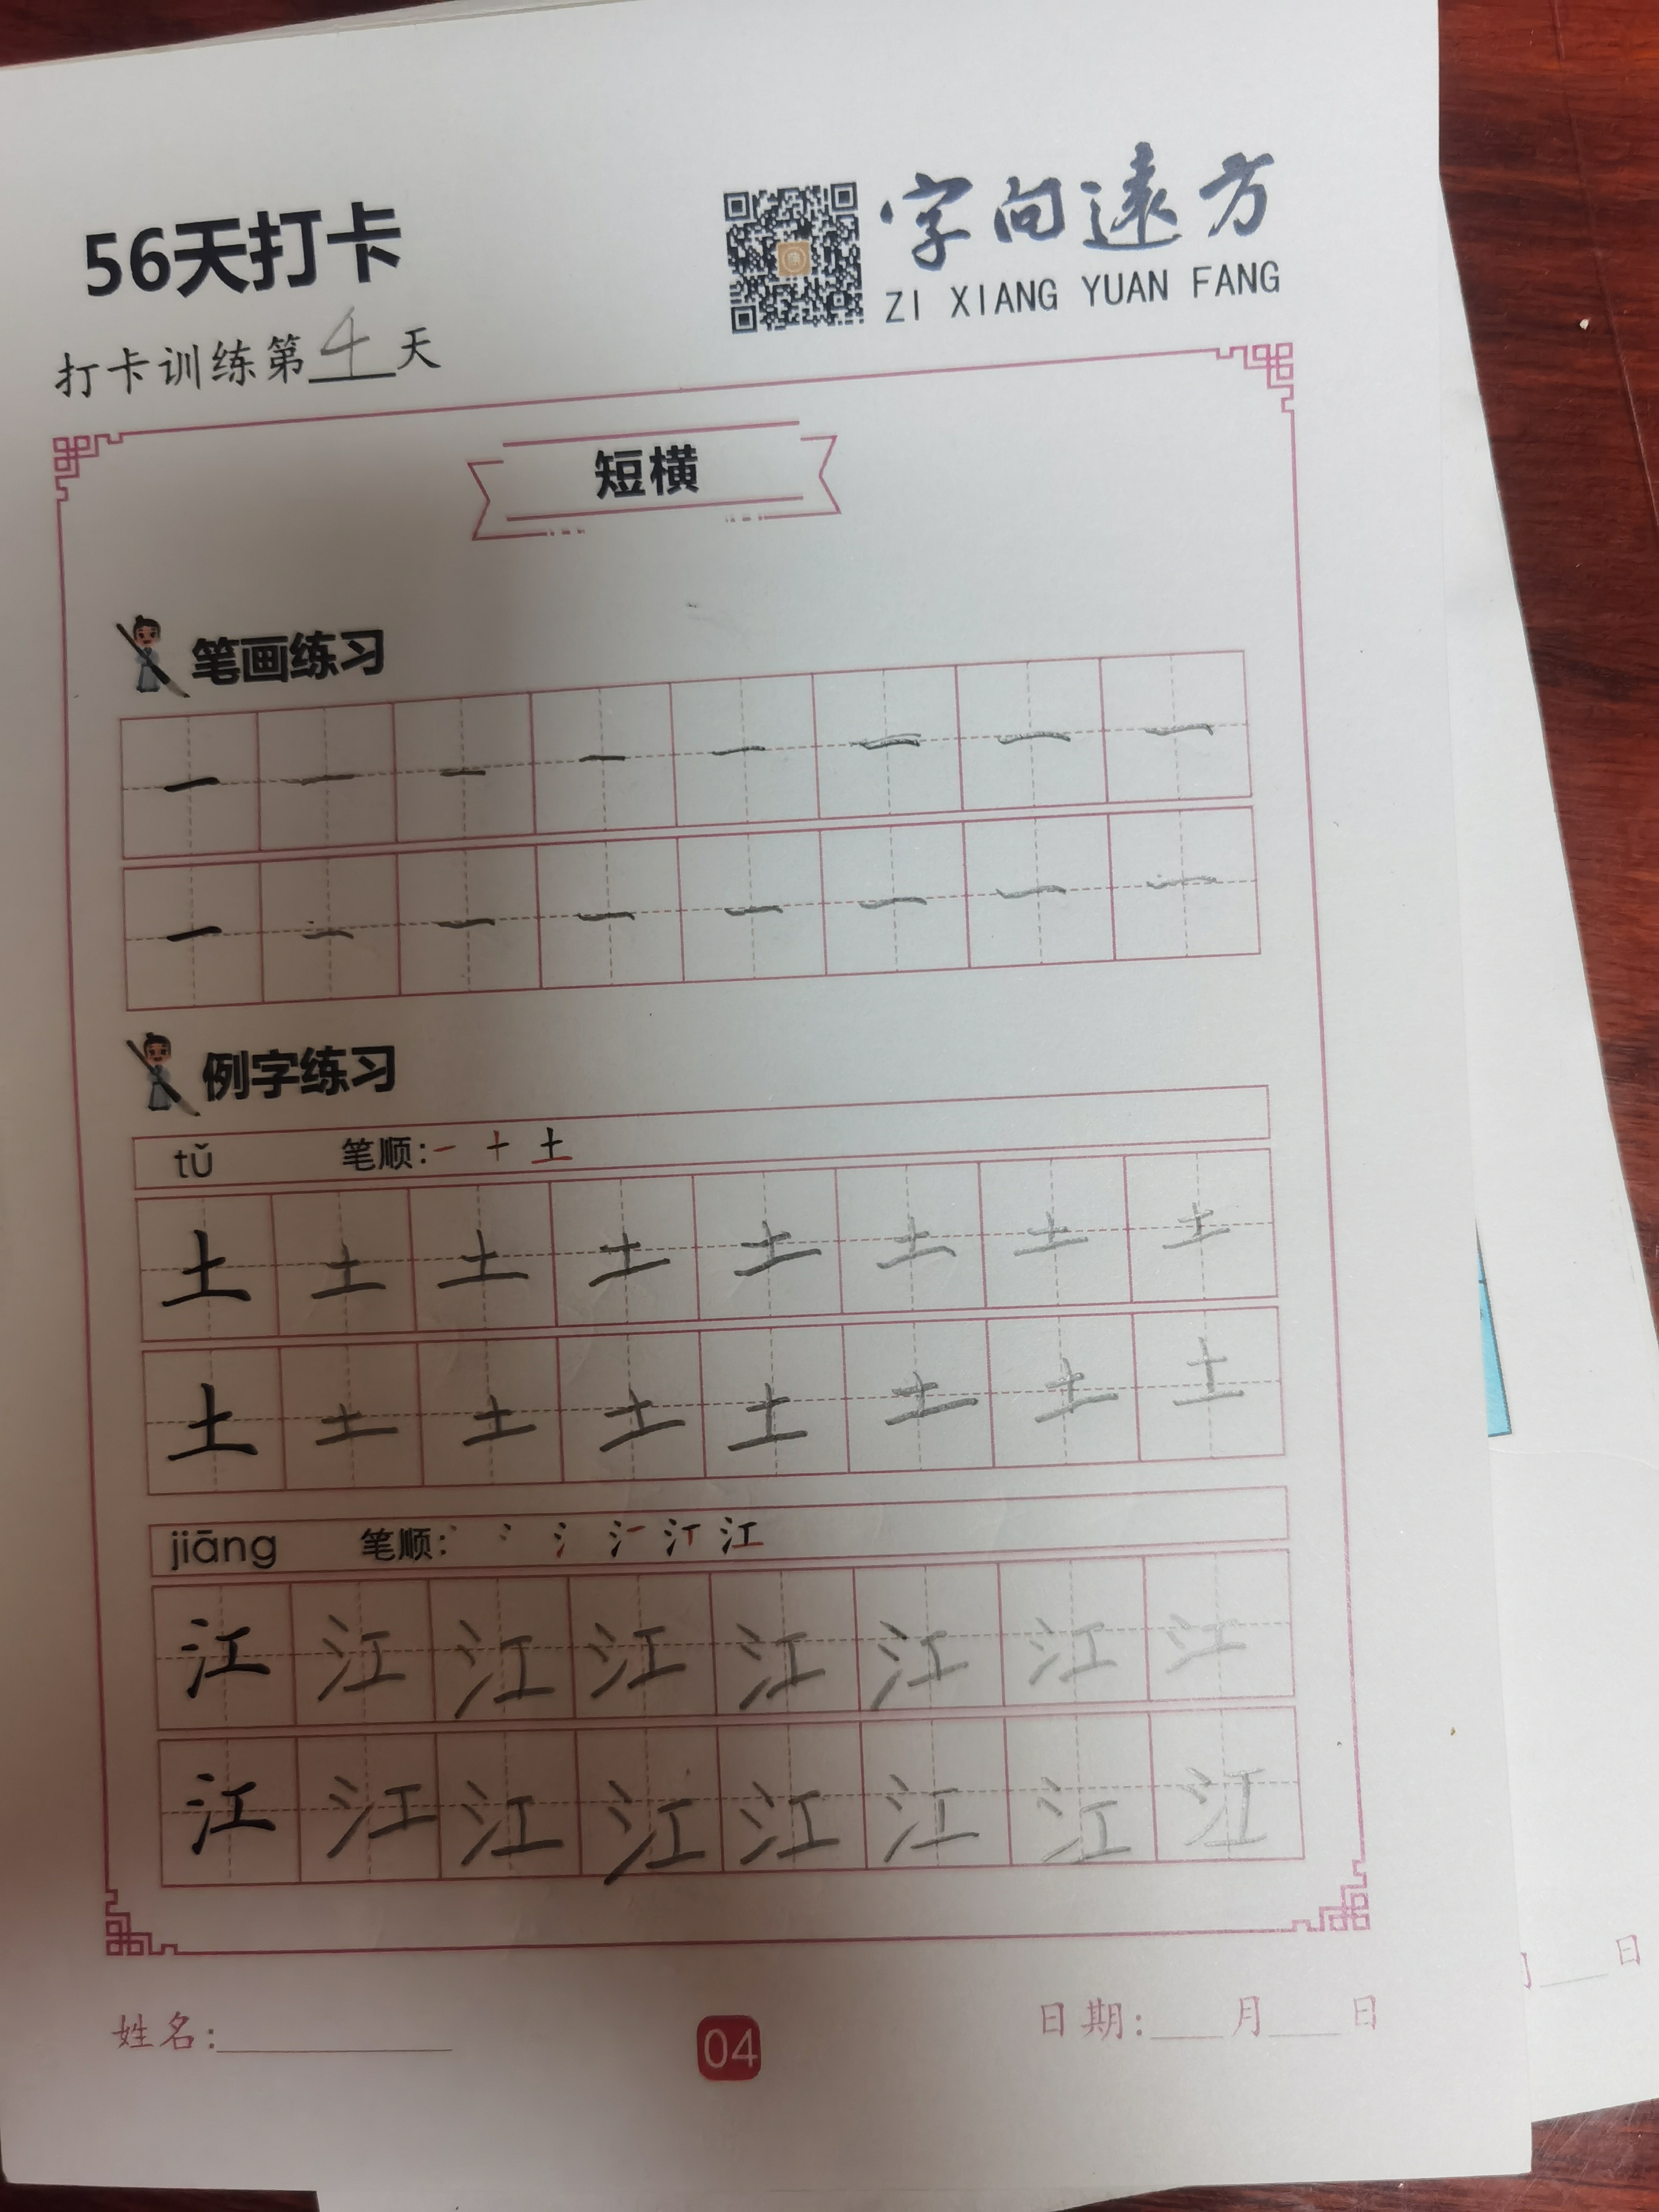 56天打卡
字向遠方
ZI XIANG YUAN FANG
打卡训练第4天
短横
笔画练习
一 一 一 一 一 一 一 一
一 一 一 一 一 一 一 一
例字练习
tǔ 笔顺: 一 十 土
土 土 土 土 土 土 土 土
土 土 土 土 土 土 土 土
jiāng 笔顺: 江
江 江 江 江 江 江 江 江
江 江 江 江 江 江 江 江
姓名:
04
日期: 月 日
日